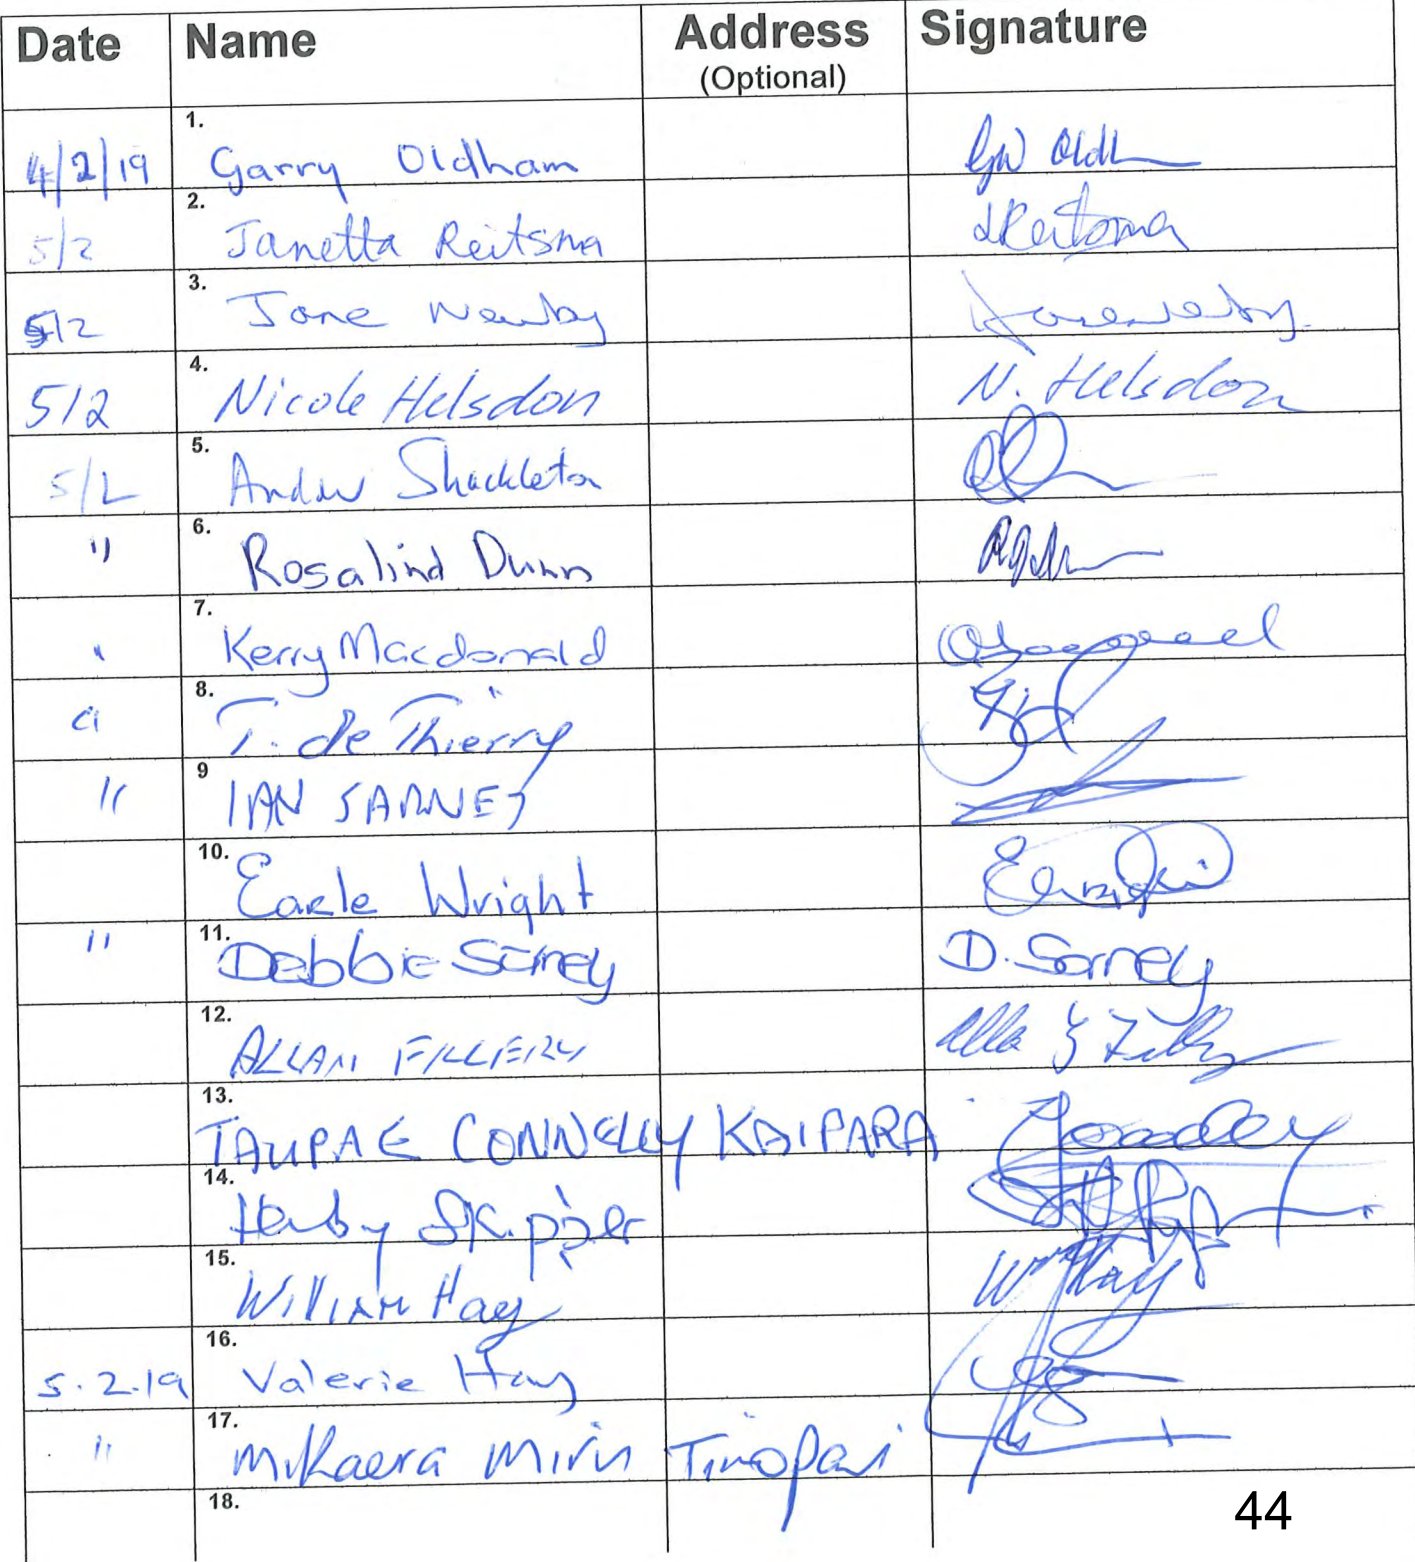 Date Name Address Signature
(Optional)
1.
4/2/19 Garry Oldham GW Oldh
2.
5/2 Janetta Reitsma JReitsma
3.
5/2 Jane Newby Janenewby
4.
5/2 Nicole Helsdon N. Helsdon
5.
5/2 Andrew Shackleton
6.
" Rosalind Dunn
7.
" Kerry Macdonald
8.
" T. de Thierry
9
" IAN SARNEY
10.
Earle Wright
11.
" Debbie Sarney D. Sarney
12.
ALLAN FILLERY
13.
TAUPAE CONNELLY KAIPARA
14.
Skipper
15.
William Hay W Hay
16.
5.2.19 Valerie Hay
17.
" Mikaera Miru Tinopai
18.
44